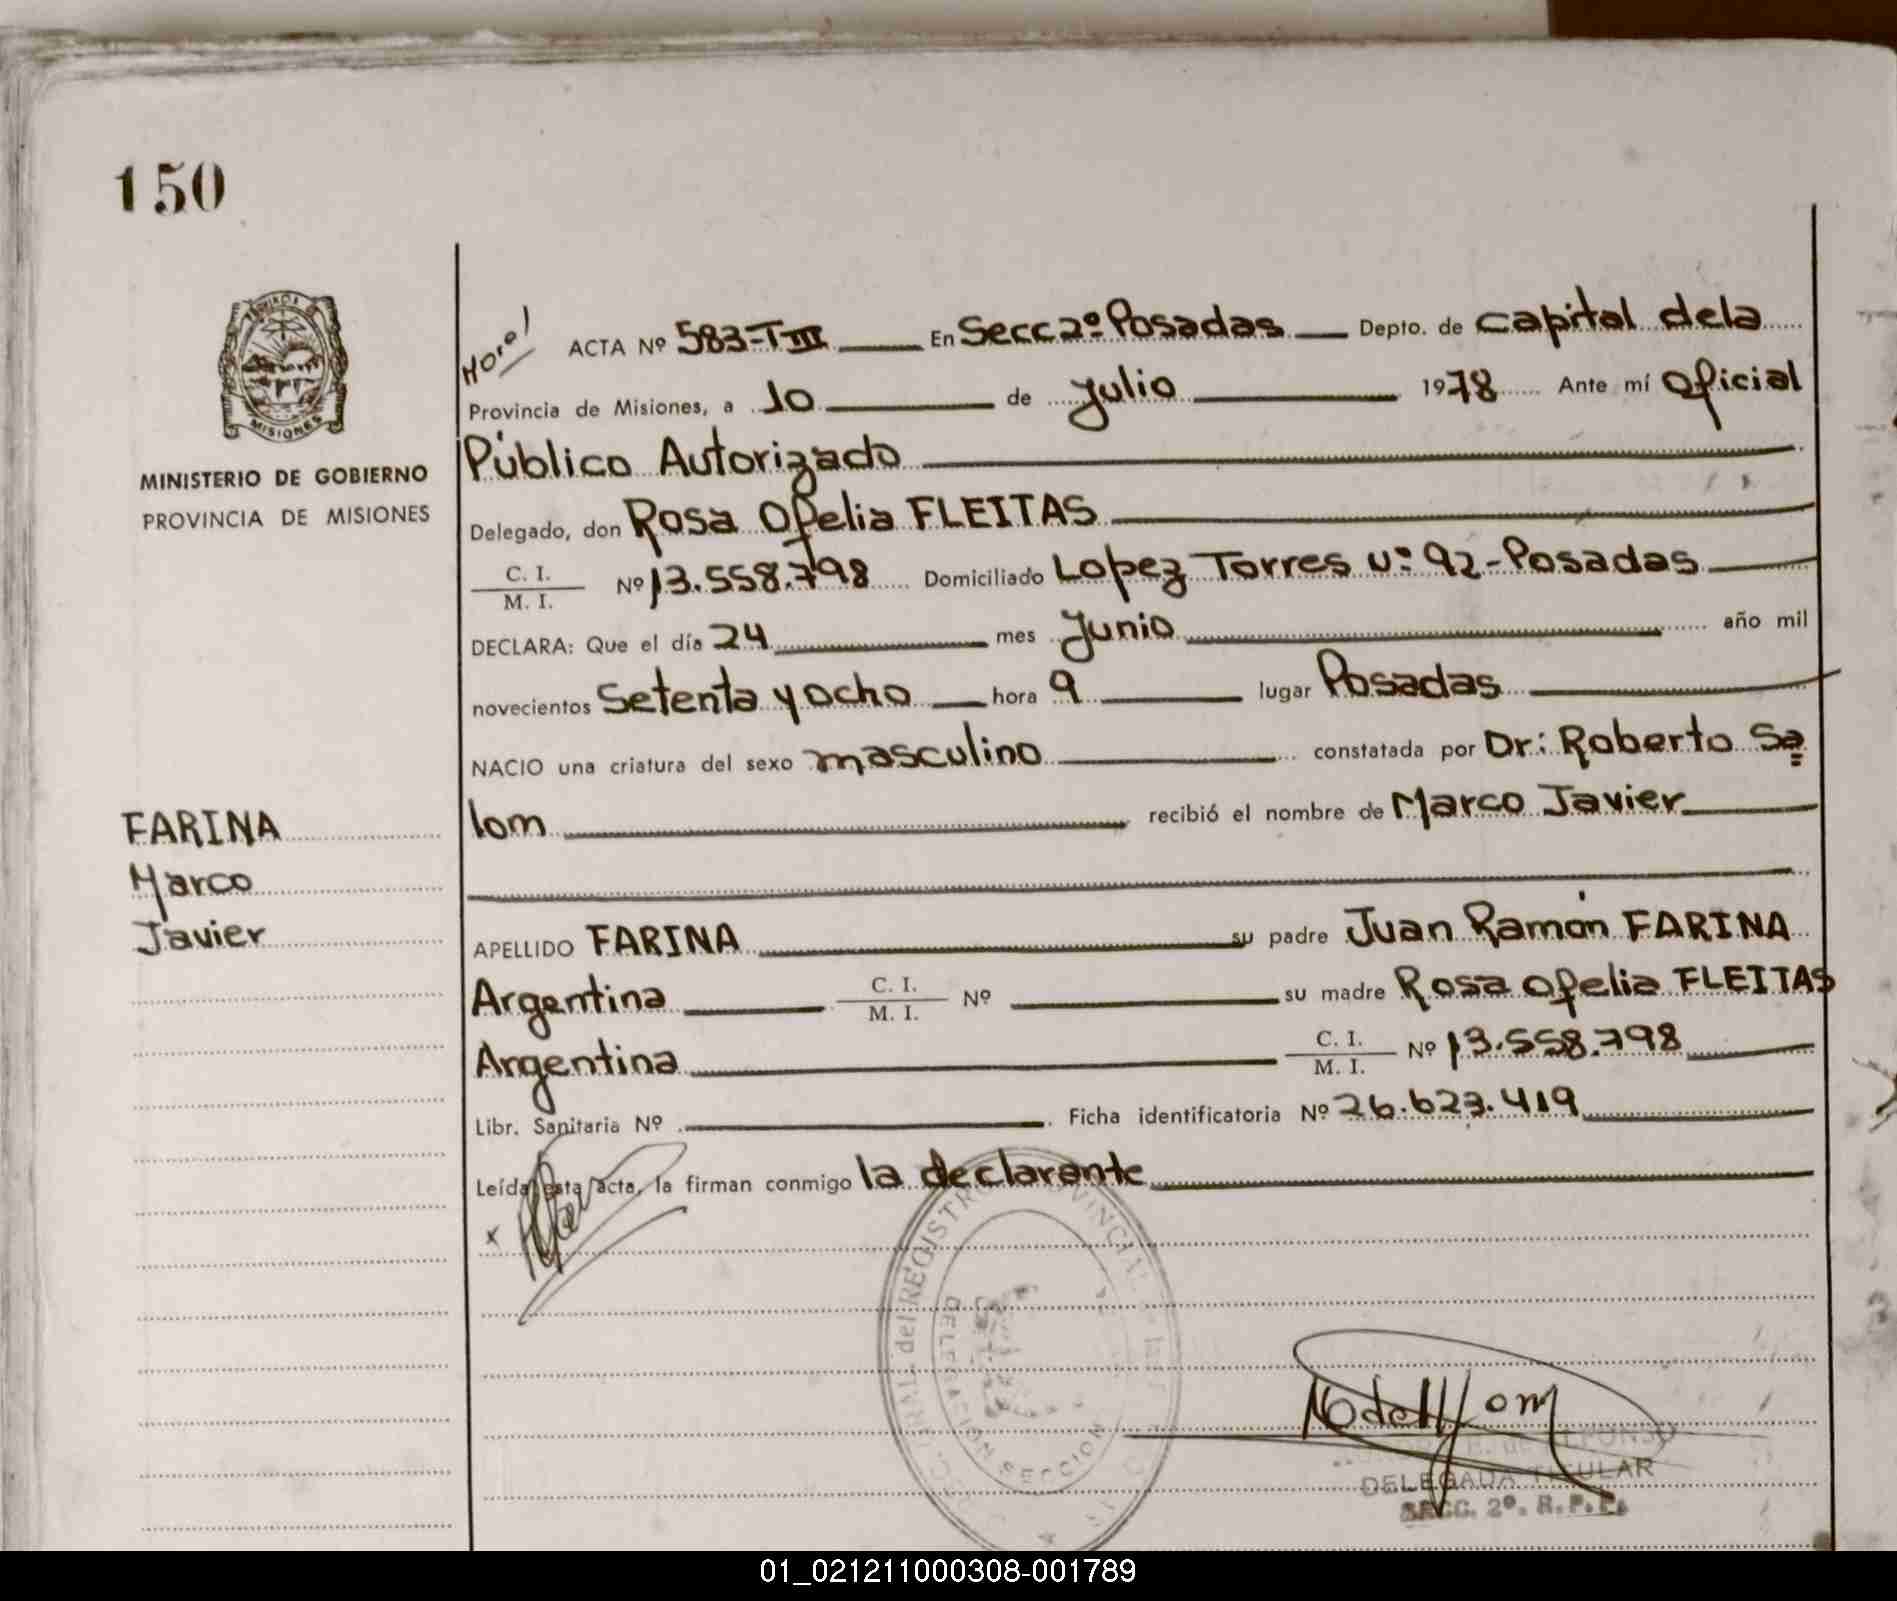 150
PROVINCIA DE
MISIONES
MINISTERIO DE GOBIERNO
PROVINCIA DE MISIONES
ACTA Nº 583-TIII En Secc 2º Posadas Depto. de capital de la
Provincia de Misiones, a 10 de Julio 1978 Ante mí Oficial
Público Autorizado
Delegado, don Rosa Ofelia FLEITAS
C. I.
M. I. Nº 13.558.798 Domiciliado Lopez Torres nº 92-Posadas
DECLARA: Que el día 24 mes Junio año mil
novecientos Setenta y ocho hora 9 lugar Posadas
NACIO una criatura del sexo masculino constatada por Dr: Roberto Sa=
lom recibió el nombre de Marco Javier
FARINA
Marco
Javier
APELLIDO FARINA su padre Juan Ramón FARINA
Argentina C. I.
M. I. Nº su madre Rosa Ofelia FLEITAS
Argentina C. I.
M. I. Nº 13.558.798
Libr. Sanitaria Nº Ficha identificatoria Nº 26.623.419
Leída esta acta, la firman conmigo la declarante
x
del REGISTRO PROVINCIAL
DELEGACION SECCION
DELEGADA TITULAR
SECC. 2º. R.P.P.
01_021211000308-001789